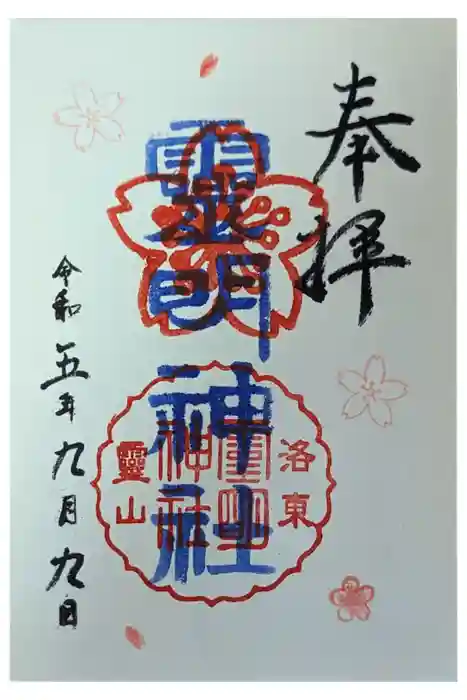 奉拝
霊明神社
洛東
靈明
神社
靈山
令和五年九月九日